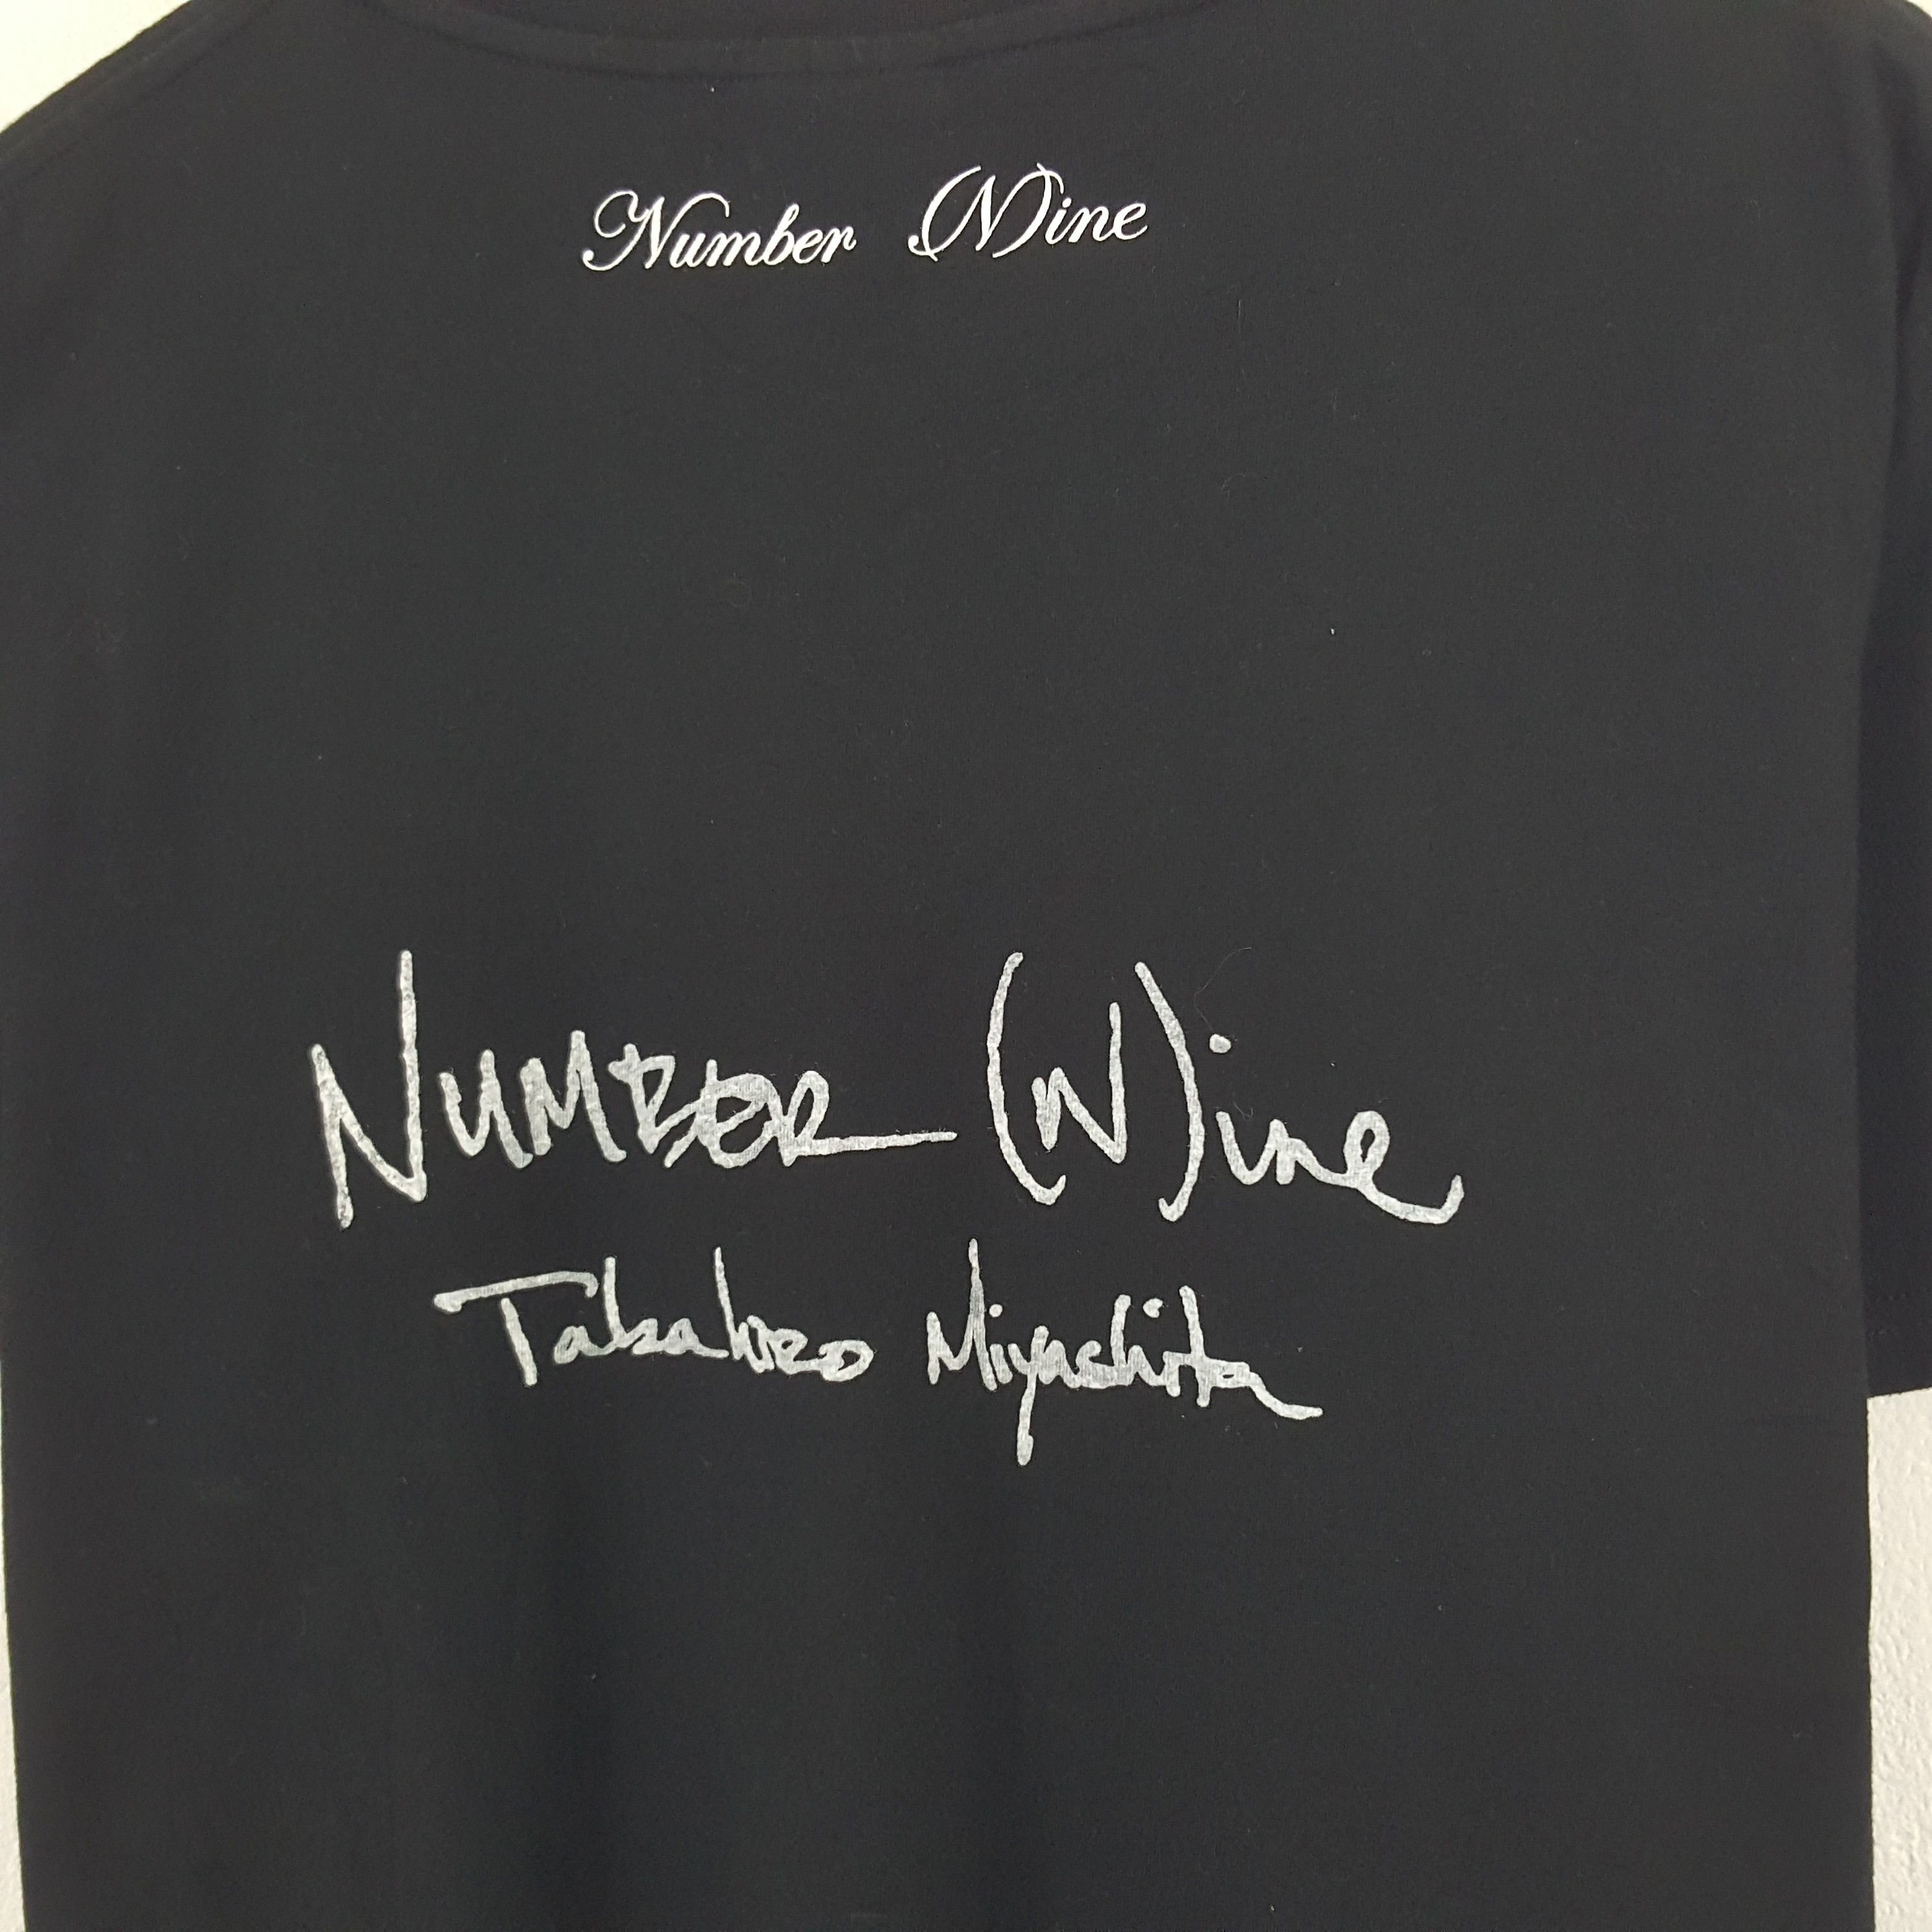 Number (N)ine
NUMBER (N)ine
Takahiro Miyashita